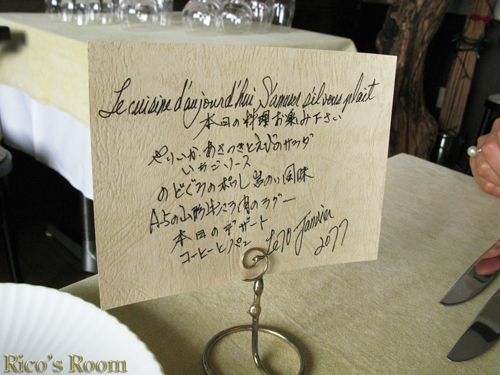 Le cuisine d'aujourd'hui S'amuser sil vous plait
本日の料理お楽み下さい
やりいか あさつきとえびのサラダ
いちごソース
のどぐろのポワレ 岩のり風味
A5の山形牛ころ肉のラグー
本日のデザート
コーヒーとパン
Le 10 Janvier
2077
Rico's Room